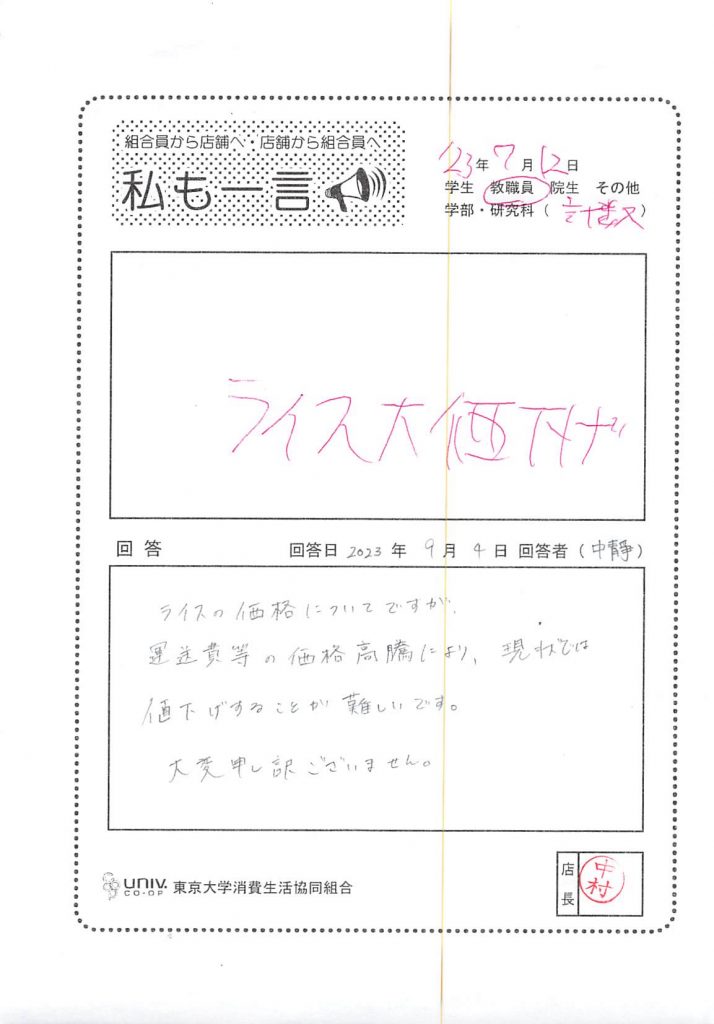 組合員から店舗へ・店舗から組合員へ
私も一言
'23年7月12日
学生 教職員 院生 その他
学部・研究科( )
ライス大価下げ
回答 回答日 2023年 9月 4日 回答者(中靜)
ライスの価格についてですが、
運送費等の価格高騰により、現状では
値下げすることが難しいです。
大変申し訳ございません。
UNIV. CO-OP 東京大学消費生活協同組合
店長 中村